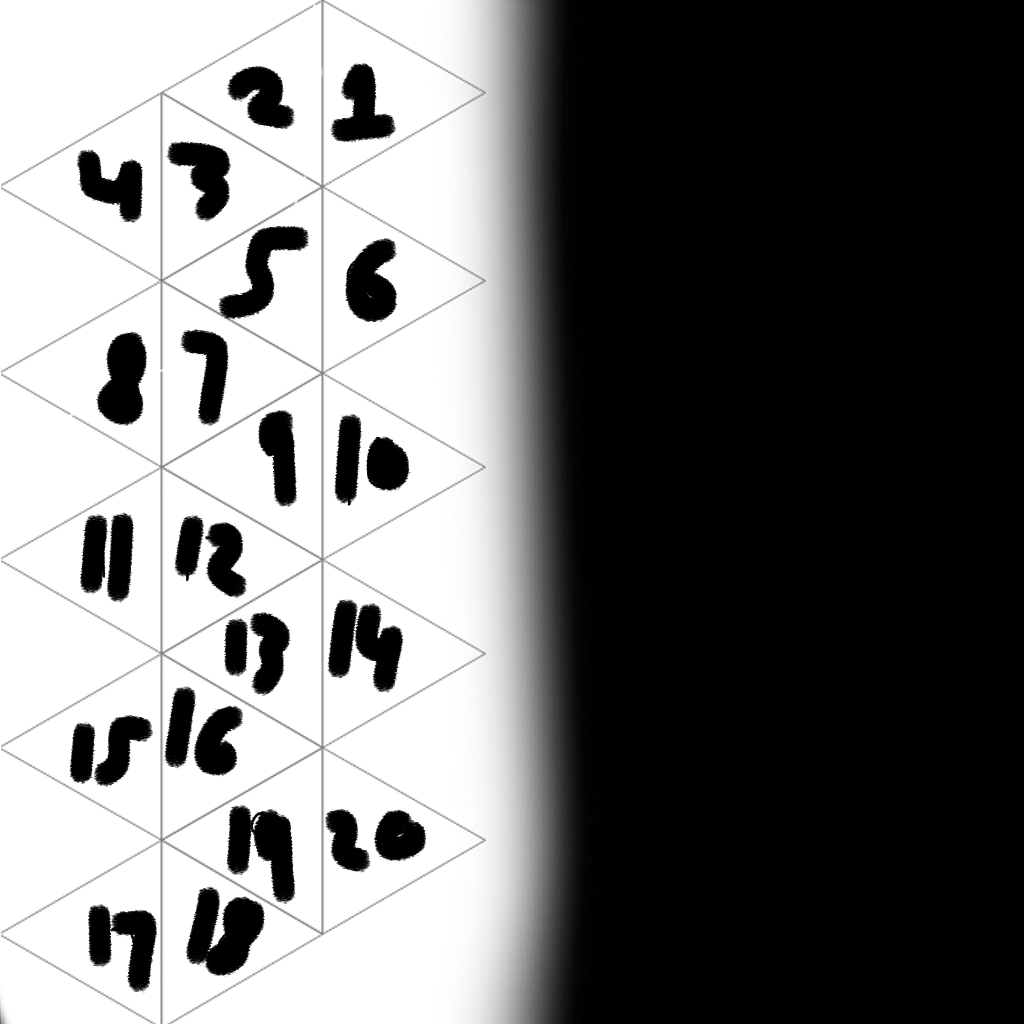 2 1
4 3
5 6
8 7
9 10
11 12
13 14
15 16
19 20
17 18